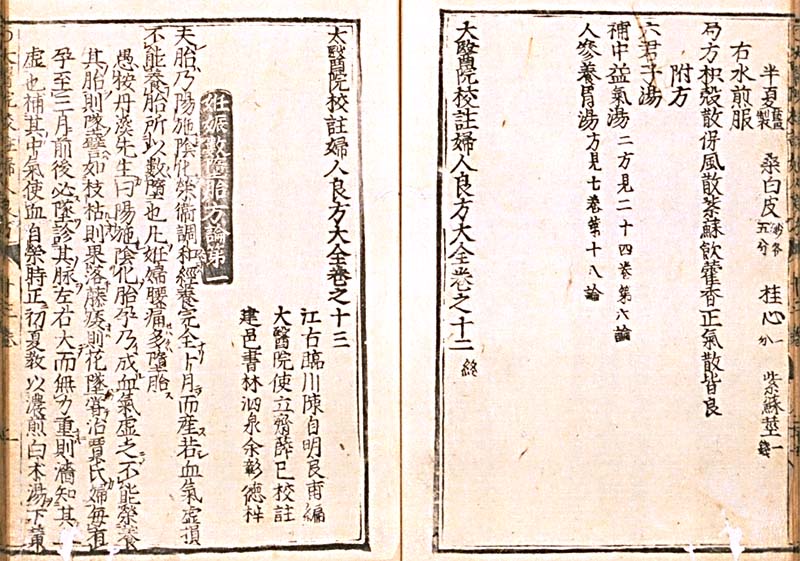 半夏 薑製 桑白皮 炒各五分 桂心 一分 紫蘇莖 一錢
右水煎服
芎方枳殼散仔風散紫蘇飲藿香正氣散皆良
附方
六君子湯
補中益氣湯 二方見二十四卷第六論
人參養胃湯 方見七卷第十八論
太醫院校註婦人良方大全卷之十二 終
太醫院校註婦人良方大全卷之十三
江右臨川陳自明良甫編
大醫院使立齋薛已校註
建邑書林泗泉余彰德梓
妊娠數墮胎方論第一
夫胎乃陽施陰化榮衛調和經養完全十月而產若血氣虛損
不能養胎所以數墮也凡妊婦腰痛多墮胎
愚按丹溪先生曰陽施陰化胎孕乃成血氣虛乏不能榮養
其胎則墜譬如枝枯則果落藤痿則花墜嘗治賈氏婦每有
孕至三月前後必墜診其脉左右大而無力重則濇知其
虛也補其中氣使血自榮時正初夏教以濃煎白朮湯下黃